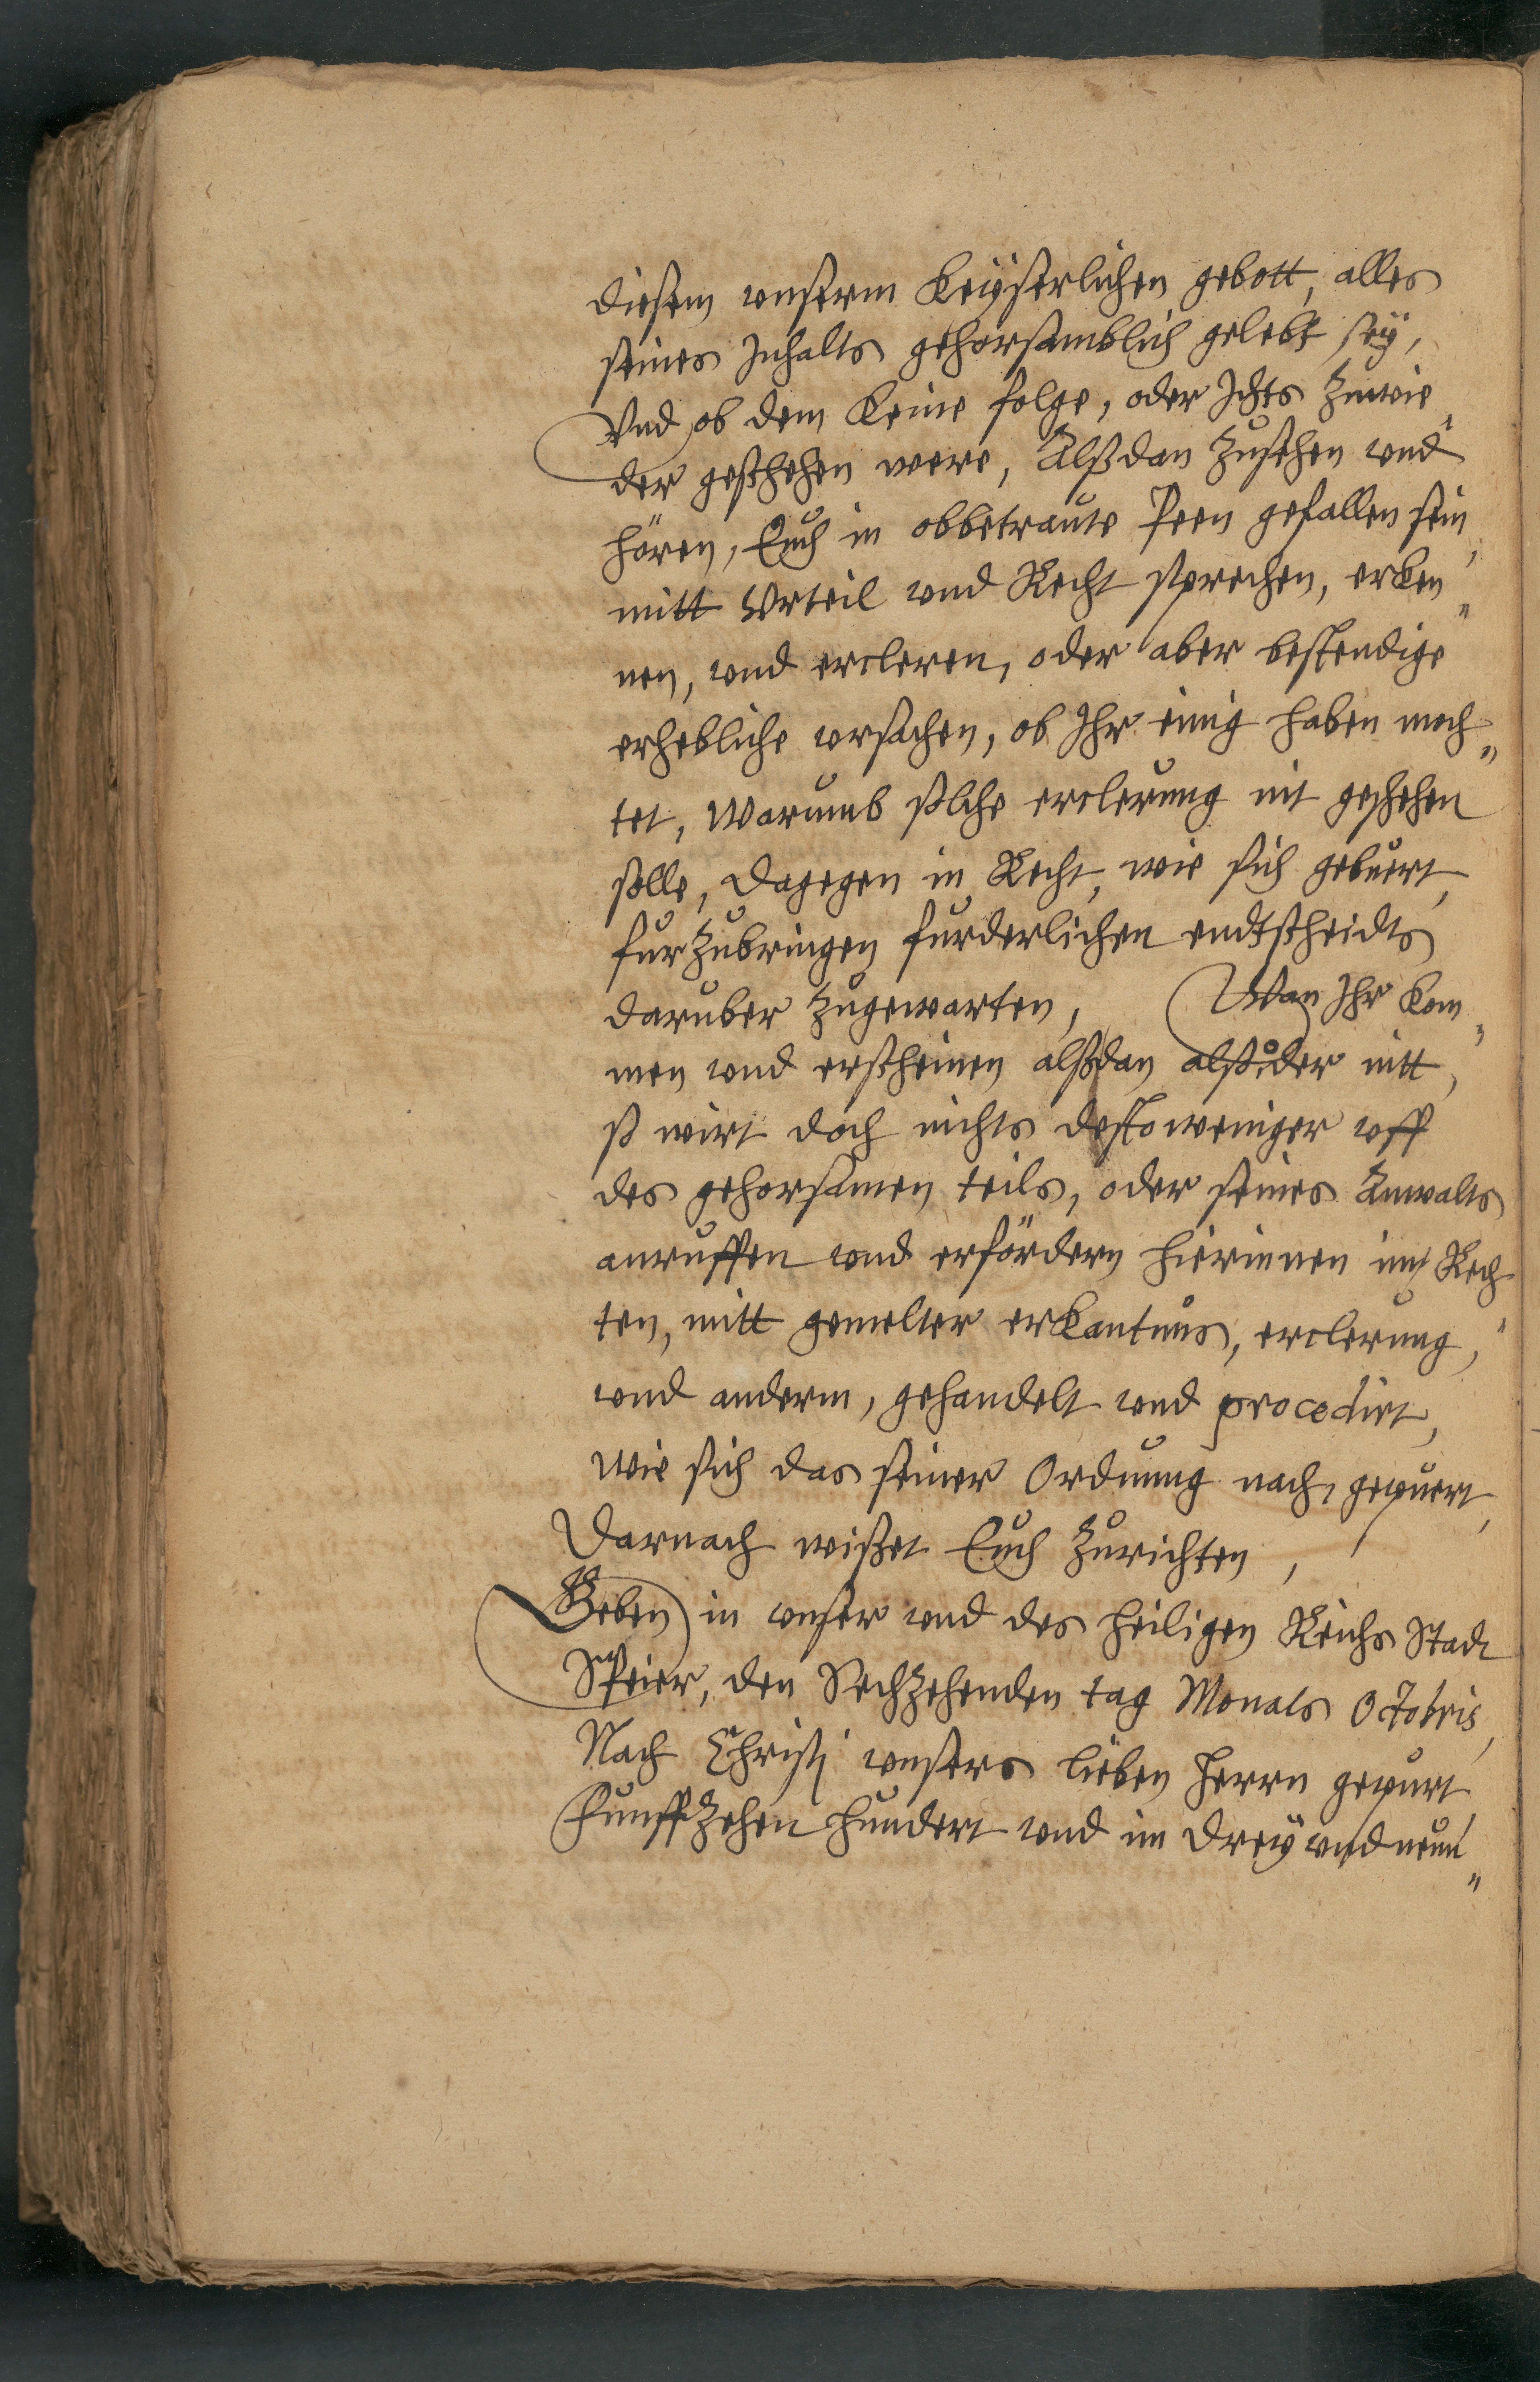 diesem unserm Keyserlichen gebott, alles
seines Inhalts gehorsamblich gelebt sey,
Vnd ob dem Keine folge, oder Ichts zuwie„
der geschehen were, Alßdan zusehen vnd
hören, Euch in obbetraute Peen gefallen sein,
mitt Vrteil vnd Recht sprechen, erken„
nen, vnd ercleren, oder aber bestendige
erhebliche vrsachen, ob Ihr einig haben moch„
tet, Warumb solche erclerung nit geschehen
solle, dagegen in Recht, wie sich gebuert,
furzubringen furderlichen endtscheidts
daruber zugewarten, Wan Ihr kom„
men vnd erscheinen alßdan alß oder nitt,
so wirt doch nichts destoweniger vff
des gehorsamen teils, oder seines Anwalts
anruffen vnd erfördern hierinnen im Rech„
ten, mitt gemelter erkantnus, erclerung,
vnd anderm, gehandelt vnd procedirt,
wie sich das seiner Ordnung nach, gepuert,
Darnach wisset Euch zurichten,
Geben in vnser vnd des heiligen Reichs Stadt
Speier, den Sechzehenden tag Monats Octobris,
Nach Christi vnsers lieben Herrn gepurt
Funffzehen hundert vnd im dreyvndneun„